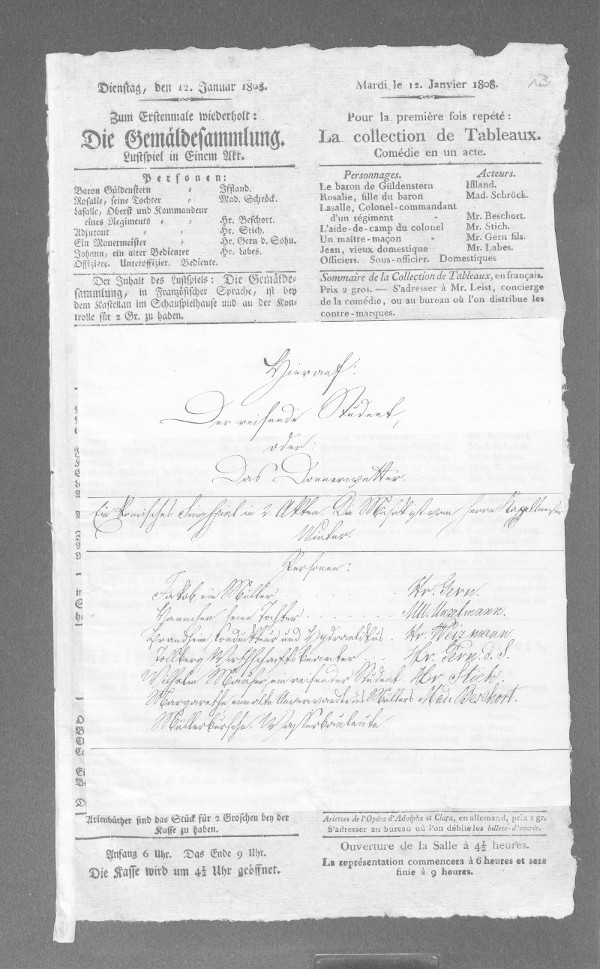 13
Dienstag, den 12. Januar 1808.
Zum Erstenmale wiederholt:
Die Gemäldesammlung.
Lustspiel in Einem Akt.
Personen:
Baron Güldenstern " Iffland.
Rosalie, seine Tochter " Mad. Schröck.
Lasalle, Oberst und Kommandeur
eines Regiments " " Hr. Beschort.
Adjutant " " Hr. Stich.
Ein Mauermeister " Hr. Gern d. Sohn.
Johann, ein alter Bedienter Hr. Labes.
Offiziere. Unteroffizier. Bediente.
Der Inhalt des Lustspiels: Die Gemälde-
sammlung, in Französischer Sprache, ist bey
dem Kastellan im Schauspielhause und an der Kon-
trolle für 2 Gr. zu haben.
Mardi, le 12. Janvier 1808.
Pour la première fois repété:
La collection de Tableaux.
Comédie en un acte.
Personnages. Acteurs.
Le baron de Güldenstern Iffland.
Rosalie, fille du baron Mad. Schröck.
Lasalle, Colonel-commandant
d'un régiment - Mr. Beschort.
L'aide-de-camp du colonel Mr. Stich.
Un maître-maçon - Mr. Gern fils.
Jean, vieux domestique Mr. Labes.
Officiers. Sous-officier. Domestiques
Sommaire de la Collection de Tableaux, en français.
Prix 2 gros. — S'adresser à Mr. Leist, concierge
de la comédie, ou au bureau où l'on distribue les
contre-marques.
Hierauf:
Der reisende Student,
oder:
Das Donnerwetter
Ein komisches Singspiel in 2 Akten. Die Musik ist vom Herrn Kapellmeister
Winter.
Personen:
Jakob ein Müller . . . Hr. Gern.
Hannchen seine Tochter . . . . Mlle Unzelmann.
Condukteur und Hr.
Hr. Gern. d. S.
Wilhelm ein reisender Student Hr Stich.
Margarethe eine alte Anverwandte des Müllers Mad. Beschort.
Müllerbursche. Wasserbauleute
Arienbücher sind das Stück für 2 Groschen bey der
Kasse zu haben.
Anfang 6 Uhr. Das Ende 9 Uhr.
Die Kasse wird um 4½ Uhr geöffnet.
Ariettes de l'Opéra d'Adolphe et Clara, en allemand, prix 2 gr.
S'adresser au bureau où l'on débite les billets-d'entrée.
Ouverture de la Salle à 4½ heures.
La représentation commencera à 6 heures et sera
finie à 9 heures.